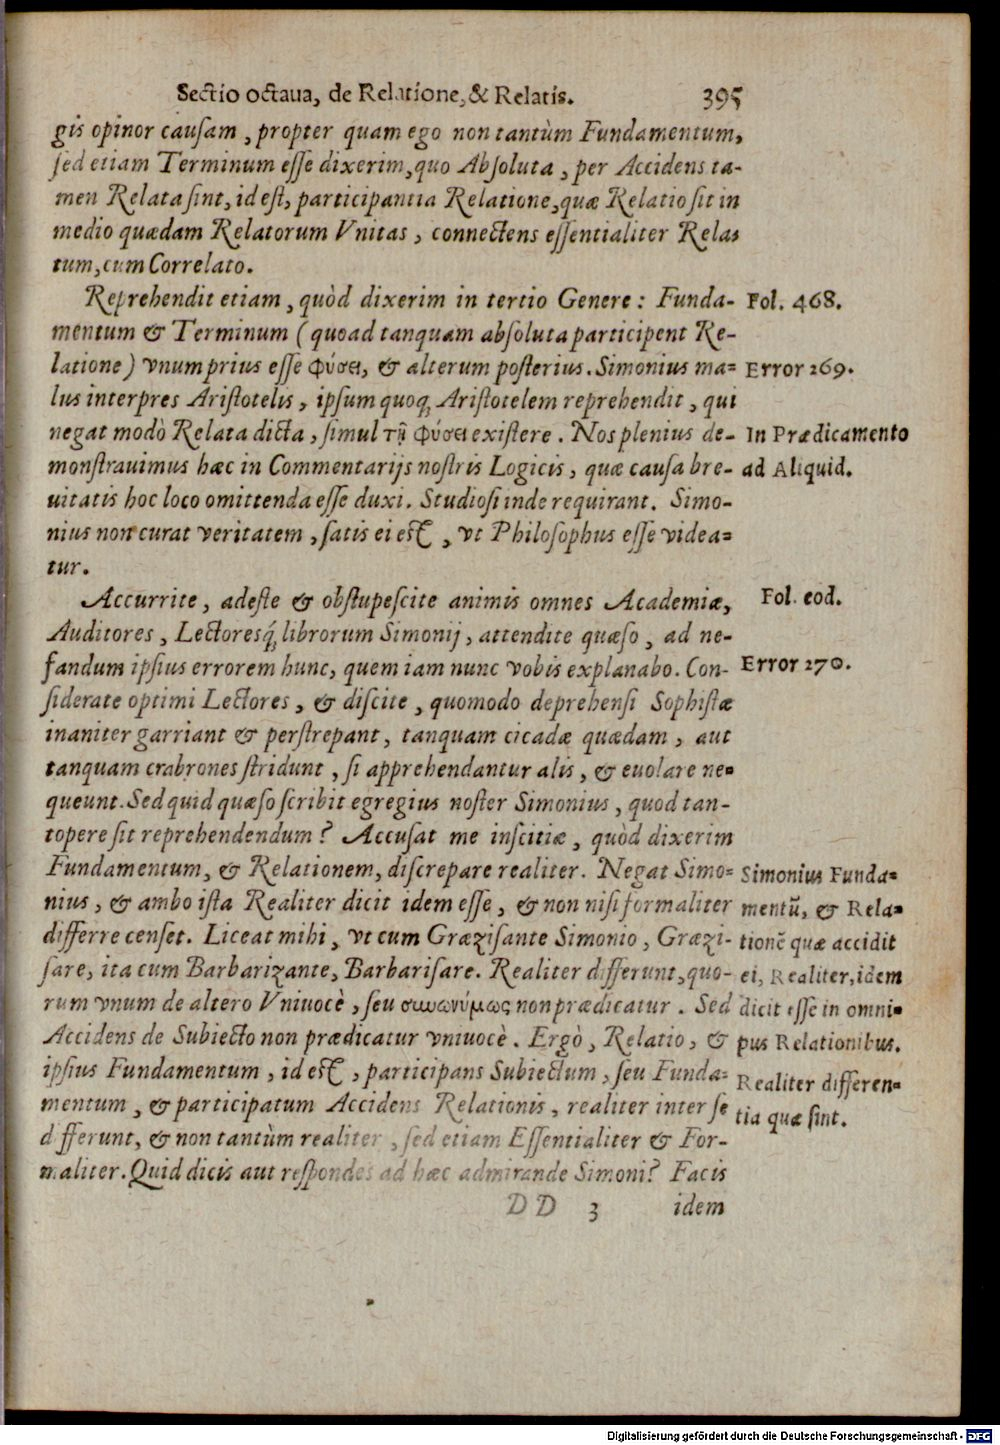 Sectio octaua, de Relatione, & Relatis. 395
gis opinor cauſam, propter quam ego non tantùm Fundamentum,
ſed etiam Terminum eſſe dixerim, quo Abſoluta, per Accidens ta-
men Relata ſint, id eſt, participantia Relatione, quæ Relatio ſit in
medio quædam Relatorum Vnitas, connectens eſſentialiter Rela-
tum, cum Correlato.
Reprehendit etiam, quòd dixerim in tertio Genere: Funda-
Fol. 468.
mentum & Terminum (quoad tanquam abſoluta participent Re-
latione) vnum prius eſſe φύσει, & alterum poſterius. Simonius ma-
Error 269.
lus interpres Ariſtotelis, ipſum quoq; Ariſtotelem reprehendit, qui
negat modò Relata dicta, ſimul τῇ φύσει exiſtere. Nos plenius de-
In Prædicamento
monſtrauimus hæc in Commentarijs noſtris Logicis, quæ cauſa bre-
ad Aliquid.
uitatis hoc loco omittenda eſſe duxi. Studioſi inde requirant. Simo-
nius non curat veritatem, ſatis ei eſt, vt Philoſophus eſſe videa-
tur.
Accurrite, adeſte & obſtupeſcite animis omnes Academiæ,
Fol. eod.
Auditores, Lectoresq́; librorum Simonij, attendite quæſo, ad ne-
fandum ipſius errorem hunc, quem iam nunc vobis explanabo. Con-
Error 270.
ſiderate optimi Lectores, & diſcite, quomodo deprehenſi Sophiſtæ
inaniter garriant & perſtrepant, tanquam cicadæ quædam, aut
tanquam crabrones ſtridunt, ſi apprehendantur alis, & euolare ne-
queunt. Sed quid quæſo ſcribit egregius noſter Simonius, quod tan-
topere ſit reprehendendum? Accuſat me inſcitiæ, quòd dixerim
Fundamentum, & Relationem, diſcrepare realiter. Negat Simo-
Simonius Funda-
nius, & ambo iſta Realiter dicit idem eſſe, & non niſi formaliter
mentū, & Rela-
differre cenſet. Liceat mihi, vt cum Græziſante Simonio, Græzi-
tionē quæ accidit
ſare, ita cum Barbarizante, Barbariſare. Realiter differunt, quo-
ei, Realiter, idem
rum vnum de altero Vniuocè, ſeu συνωνύμως non prædicatur. Sed
dicit eſſe in omni-
Accidens de Subiecto non prædicatur vniuocè. Ergò, Relatio, &
pus Relationibus.
ipſius Fundamentum, id eſt, participans Subiectum, ſeu Funda-
Realiter differen-
mentum, & participatum Accidens Relationis, realiter inter ſe
tia quæ ſint.
differunt, & non tantùm realiter, ſed etiam Eſſentialiter & For-
maliter. Quid dicis aut reſpondes ad hæc admirande Simoni? Facis
DD 3 idem
Digitalisierung gefördert durch die Deutsche Forschungsgemeinschaft - DFG